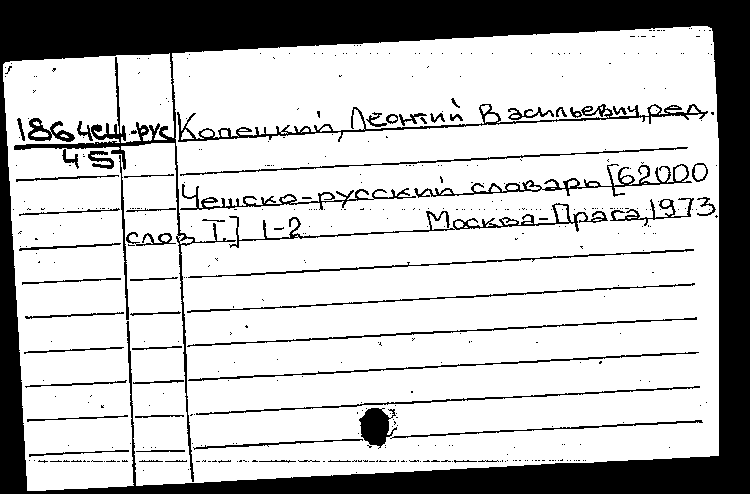 186 чеш-рус Копецкий, Леонтий Васильевич, ред.
Ч 57
Чешско-русский словарь [62000
слов Т.] 1-2 Москва-Прага, 1973.